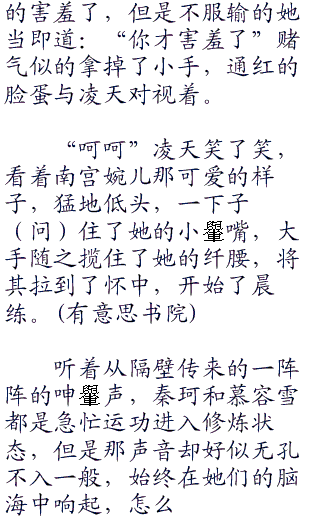 的害羞了，但是不服输的她
当即道：“你才害羞了”赌
气似的拿掉了小手，通红的
脸蛋与凌天对视着。
“呵呵”凌天笑了笑，
看着南宫婉儿那可爱的样
子，猛地低头，一下子
（问）住了她的小嘴，大
手随之揽住了她的纤腰，将
其拉到了怀中，开始了晨
练。(有意思书院)
听着从隔壁传来的一阵
阵的呻声，秦珂和慕容雪
都是急忙运功进入修炼状
态，但是那声音却好似无孔
不入一般，始终在她们的脑
海中响起，怎么